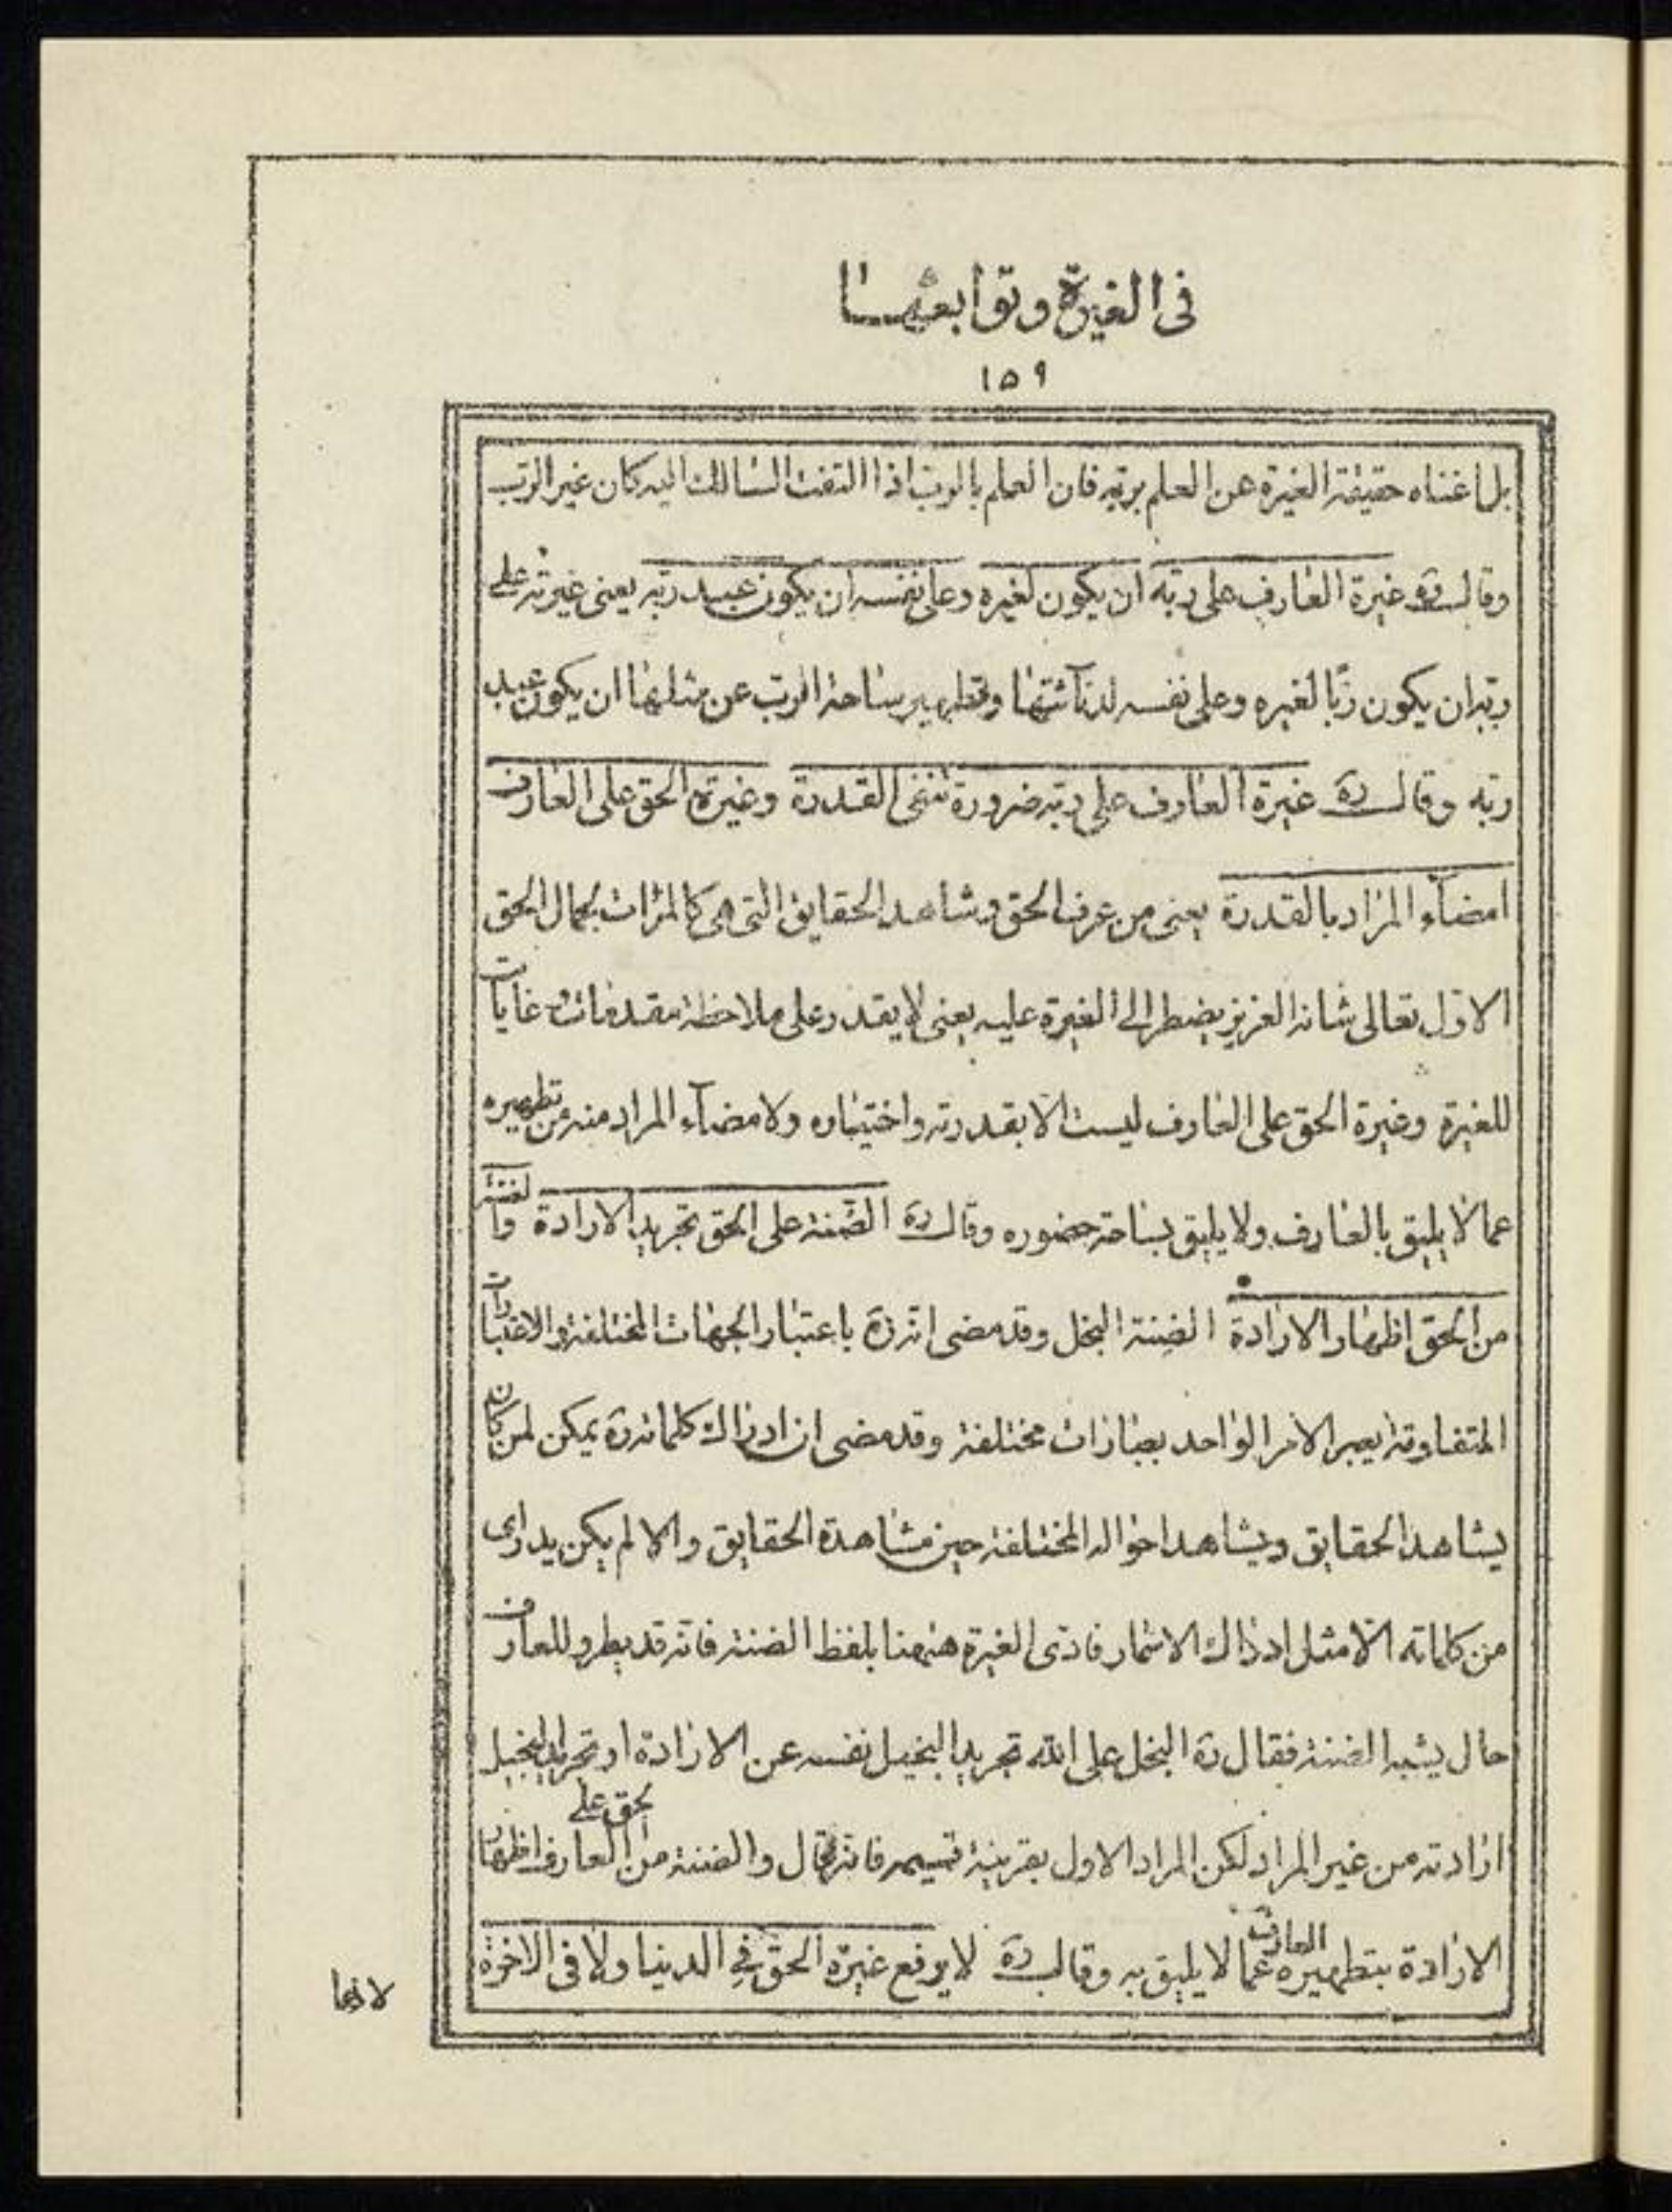 فى الغيرة وتوابعها
١٥٩
بل اغناه حقيقة الغيرة عن العلم بربه فان العلم بالرب اذا التفت السالك اليه كان غير الرب
وقال ره غيرة العارف على ربه ان يكون لغيره وعلى نفسه ان يكون عبد ربه يعنى غيرته على
ربه ان يكون ربا لغيره وعلى نفسه لدنائتها وتطهير ساحة الرب عن مثلها ان يكون عبد
ربه وقال ره غيرة العارف على ربه ضرورة تنفى القدرة وغيرة الحق على العارف
امضآء المراد بالقدرة يعنى من عرف الحق وشاهد الحقايق التى هى كالمرات لجمال الحق
الاول تعالى شانه العزيز يضطر الى الغيرة عليه يعنى لا يقدر على ملاحظة مقدمات وغايات
للغيرة وغيرة الحق على العارف ليست الا بقدرته واختياره ولامضآء المراد منه من تطهيره
عما لا يليق بالعارف ولا يليق بساحة حضوره وقال ره الضنة على الحق تجريد الارادة والضنة
من الحق اظهار الارادة الضنة البخل وقد مضى انه ره باعتبار الجهات المختلفة والاعتبارات
المتفاوتة يعبر الامر الواحد بعبارات مختلفة وقد مضى ان ادراك كلماته ره يمكن لمن كان
يشاهد الحقايق ويشاهد احواله المختلفة حين مشاهدة الحقايق والا لم يكن يدراى
من كلماته الا مثل ادراك الاسمار فادى الغيرة ههنا بلفظ الضنة فانه قد يطرو للعارف
حال يشبه الضنة فقال ره البخل على الله تجريد البخيل نفسه عن الارادة او تجريد البخيل
ارادته من غير المراد لكن المراد الاول بقرينة قسيمه فانه قال والضنة من الحق على العارف اظهار
الارادة بتطهيره العارف عما لا يليق به وقال ره لا يرفع غيرة الحق فى الدنيا ولا فى الاخرة